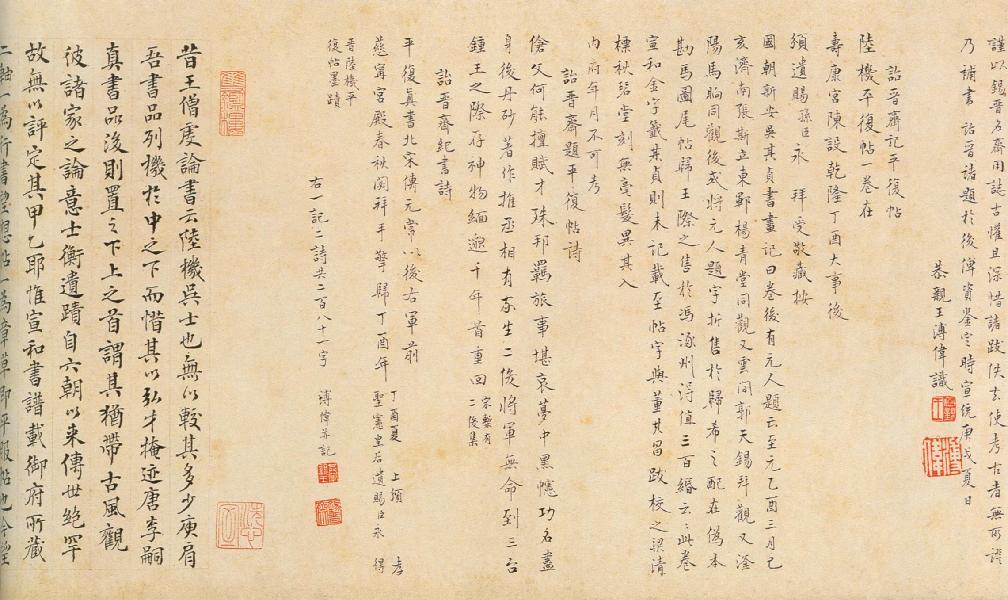 謹以錫晉名齋用誌古懽且深惜諸跋佚去使考古者無所證
乃補書詒晉諸題於後俾資鑒定時宣統庚戌夏日
恭親王溥偉識
詒晉齋記平復帖
陸機平復帖一卷在
壽康宮陳設乾隆丁酉大事後
頒遺賜孫臣永 拜受敬藏按
國朝新安吳其貞書畫記曰卷後有元人題云至元乙酉三月己
亥濟南張斯立東鄆楊青堂同觀又雲間郭天錫拜觀又滏
陽馬昫同觀後或將元人題字折售於歸希之配在偽本
勘馬圖尾帖歸王際之售於馮涿州得值三百緡云此卷
宣和金字籤某貞則未記載至帖字與董其昌跋校之梁清
標秋碧堂刻無毫髮異其入
內府年月不可考
詒晉齋題平復帖詩
傖父何能擅賦才殊邦羈旅事堪哀夢中黑幰功名盡
身後丹砂著作推丞相有孫生二俊將軍無命到三台
鍾王之際存神物緬邈千年首重回 宋槧有二俊集
詒晉齋紀書詩
平復真書北宋傳元常以後右軍前
慈寧宮殿春秋閟拜手擎歸丁酉年 丁酉夏 上頒 孝聖憲皇后遺賜臣永 得
晉陸機平復帖墨蹟
右一記二詩共二百八十一字 溥偉并記
昔王僧虔論書云陸機吳士也無以較其多少庾肩
吾書品列機於中之下而惜其以弘才掩迹唐李嗣
真書品後則置之下上之首謂其猶帶古風觀
彼諸家之論意士衡遺蹟自六朝以來傳世絕罕
故無以評定其甲乙耶惟宣和書譜載御府所藏
二軸一為行書望想帖一為章草即平復帖也今望